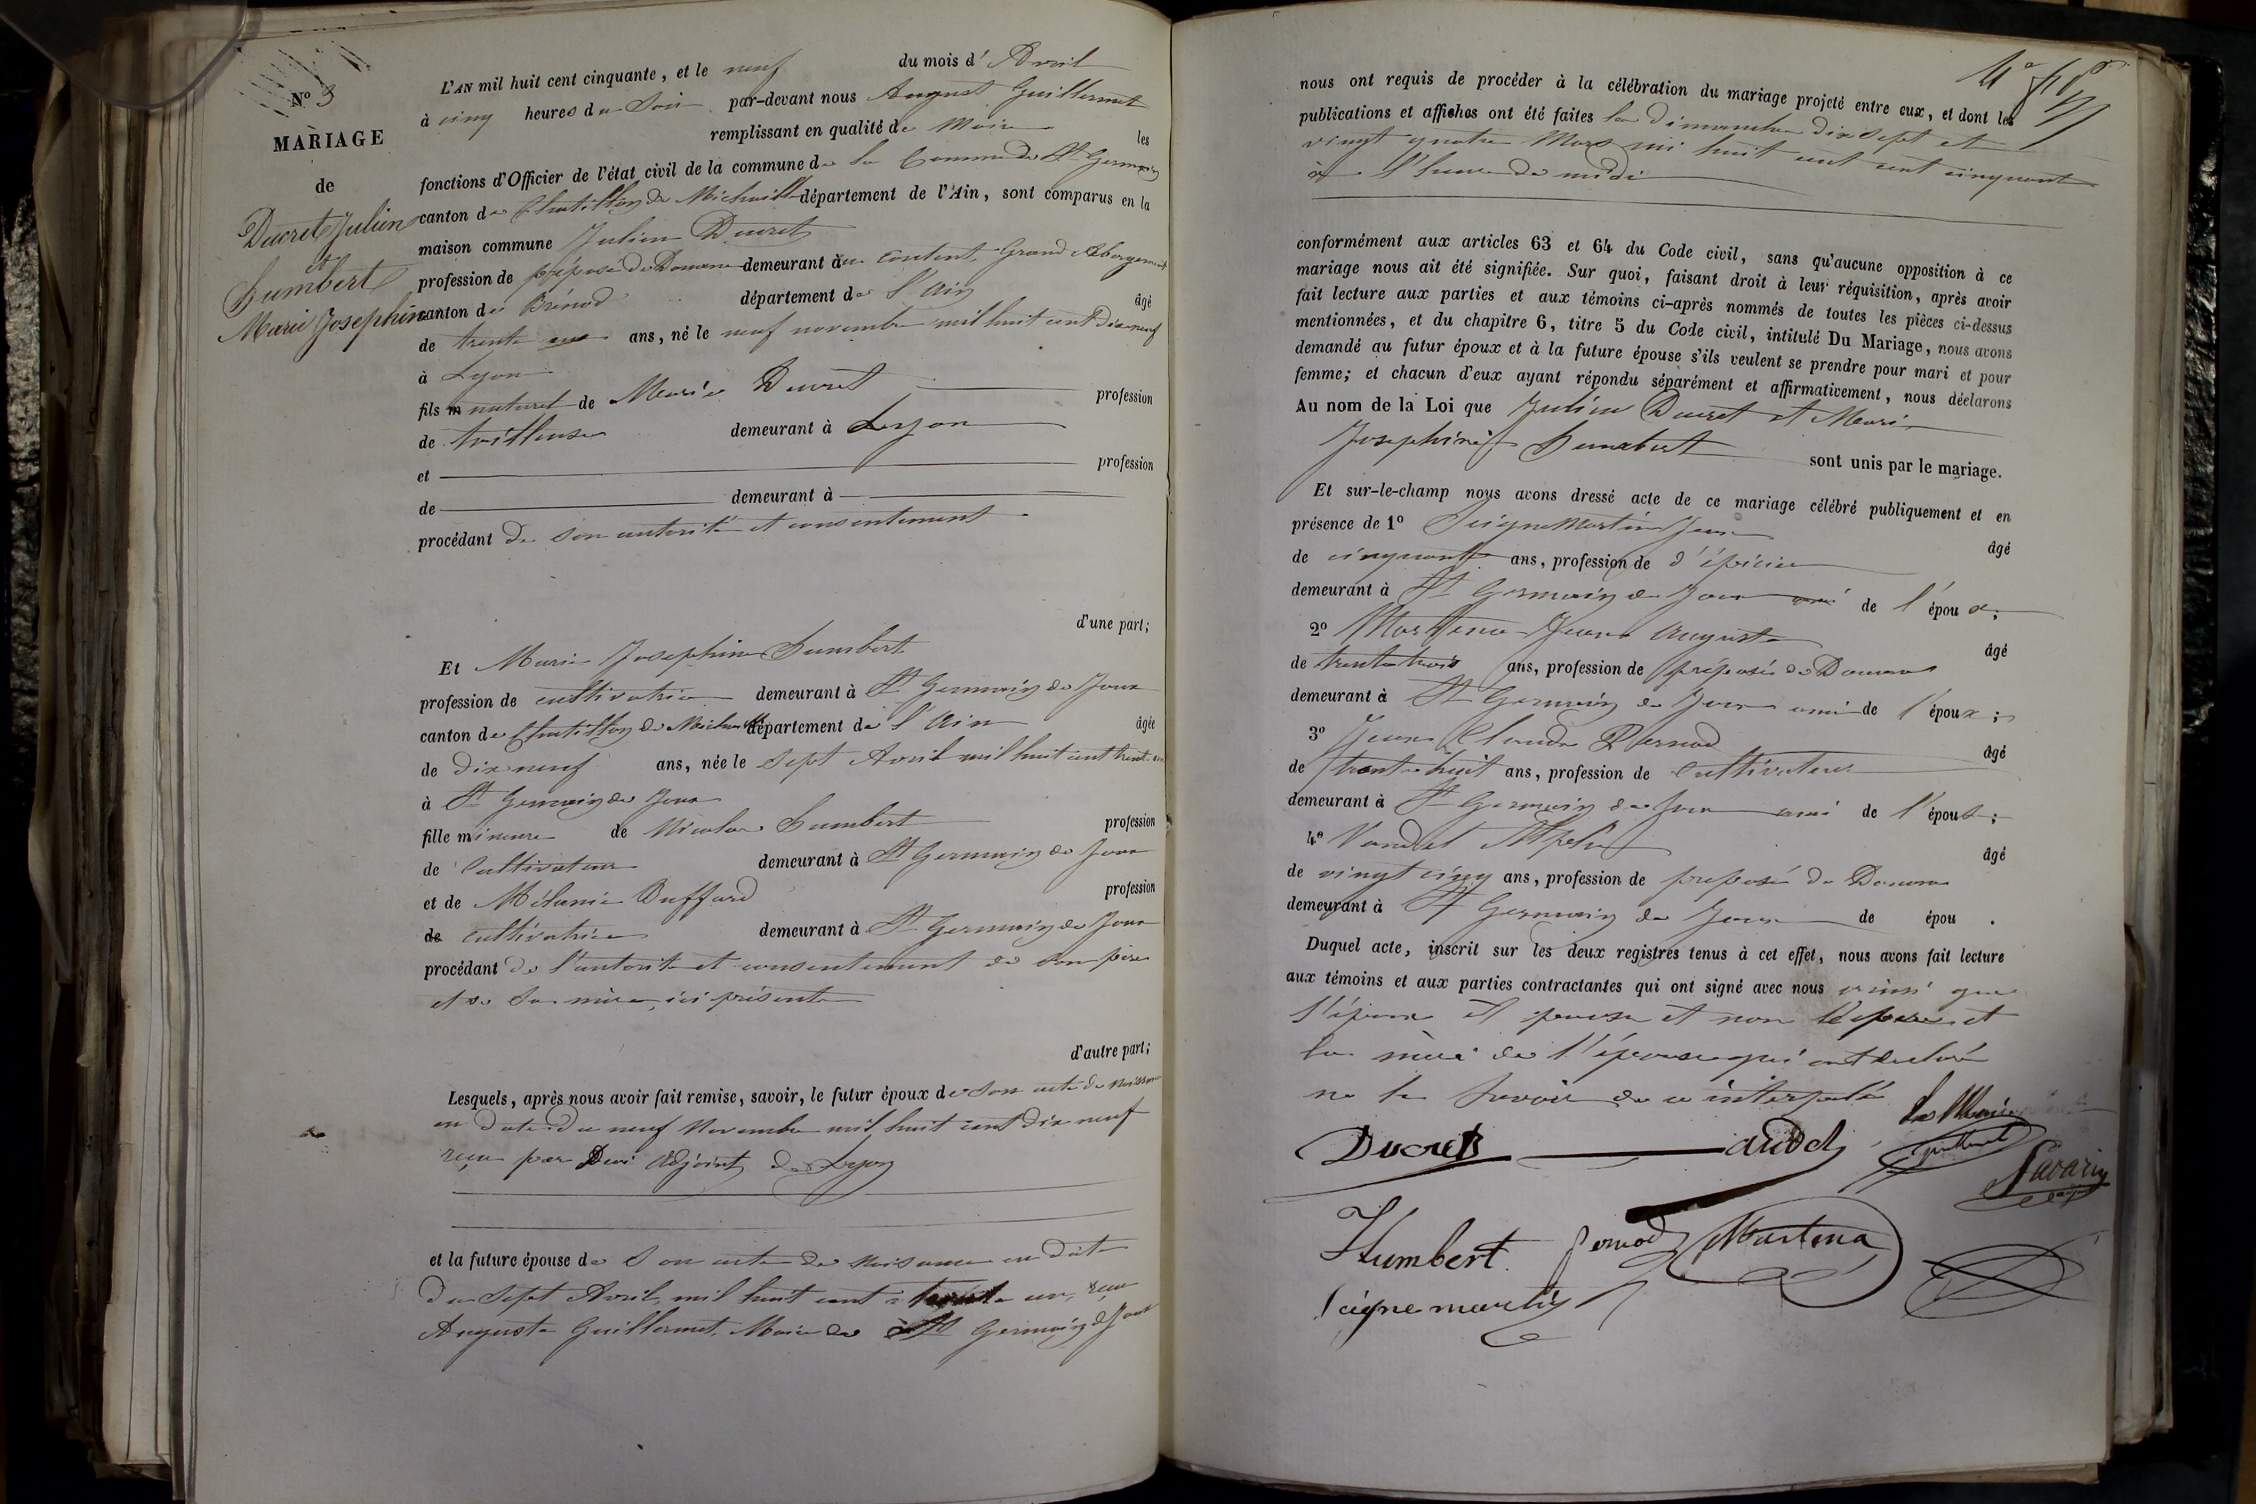 N° 3
MARIAGE
de
Ducret Julien
et
humbert
Marie Josephine
L'AN mil huit cent cinquante, et le neuf du mois d' Avril
à cinq heures du Soir par-devant nous August Guillermet
remplissant en qualité de Maire les
fonctions d'Officier de l'état civil de la commune de la Commune de St Germain
canton de Chatillon de Michaille département de l'Ain, sont comparus en la
maison commune Julien Ducret
profession de préposé de Douane demeurant à au content Grand Abergement
canton de Brénod département de l'Ain âgé
de trente ans, né le neuf novembre mil huit cent dix neuf
à Lyon
fils naturel de Marie Ducret profession
de tailleuse demeurant à Lyon
et profession
de demeurant à
procédant de son autorité et consentement
d'une part;
Et Marie Josephine humbert
profession de cultivatrice demeurant à St Germain de Joux
canton de Chatillon de Michaille département de l'Ain âgée
de dix neuf ans, née le sept Avril mil huit cent trente un
à St Germain de Joux
fille mineure de Nicolas humbert profession
de Cultivateur demeurant à St Germain de Joux
et de Mélanie Buffard profession
de cultivatrice demeurant à St Germain de Joux
procédant de l'autorité et consentement de son père
et de Sa mère, ici présents
d'autre part;
Lesquels, après nous avoir fait remise, savoir, le futur époux de Son acte de naissance
en date du neuf Novembre mil huit cent dix neuf
reçu par adjoint de Lyon
et la future épouse de Son acte de naissance en date
du Sept Avril mil huit cent trente un, reçu
Auguste Guillermet, Maire de St Germain de Joux
nous ont requis de procéder à la célébration du mariage projeté entre eux, et dont les
publications et affiches ont été faites les dimanches dix sept et
vingt quatre Mars mi huit cent cent cinquante
à l'heure de midi
conformément aux articles 63 et 64 du Code civil, sans qu'aucune opposition à ce
mariage nous ait été signifiée. Sur quoi, faisant droit à leur réquisition, après avoir
fait lecture aux parties et aux témoins ci-après nommés de toutes les pièces ci-dessus
mentionnées, et du chapitre 6, titre 5 du Code civil, intitulé Du Mariage, nous avons
demandé au futur époux et à la future épouse s'ils veulent se prendre pour mari et pour
femme; et chacun d'eux ayant répondu séparément et affirmativement, nous déclarons
Au nom de la Loi que Julien Ducret et Marie
Josephine humbert sont unis par le mariage.
Et sur-le-champ nous avons dressé acte de ce mariage célébré publiquement et en
présence de 1° Seignemartin Jean âgé
de cinquante ans, profession de d'épicier
demeurant à St Germain de Joux ami de l'époux;
2° Martena Jean Auguste âgé
de trente trois ans, profession de préposé de Douane
demeurant à St Germain de Joux ami de l'époux;
3° Jean Claude Pernod âgé
de trente huit ans, profession de Cultivateur
demeurant à St Germain de Joux ami de l'époux;
4° Vandel Alphe âgé
de vingt cinq ans, profession de préposé de Douane
demeurant à St Germain de Joux de épou .
Duquel acte, inscrit sur les deux registres tenus à cet effet, nous avons fait lecture
aux témoins et aux parties contractantes qui ont signé avec nous ainsi que
l'époux et épouse et non le père et
la mère de l'épouse qui ont déclaré
ne le Savoir de ce interpelé
Le Maire
Ducret
Guillermet
Savarin
Humbert
Pernod
Martena
Seignemartin